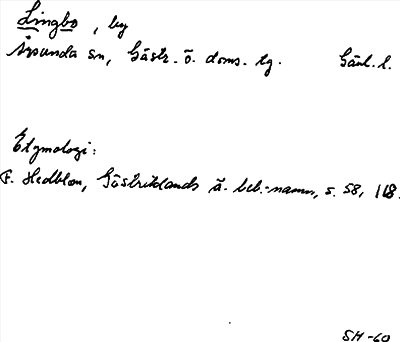 Lingbo, by
Årsunda sn, Gästr. ö. doms. tg. Gävl. l.
Etymologi:
F. Hedblom, Gästriklands ä. beb.-namn, s. 58, 118.
SH-60